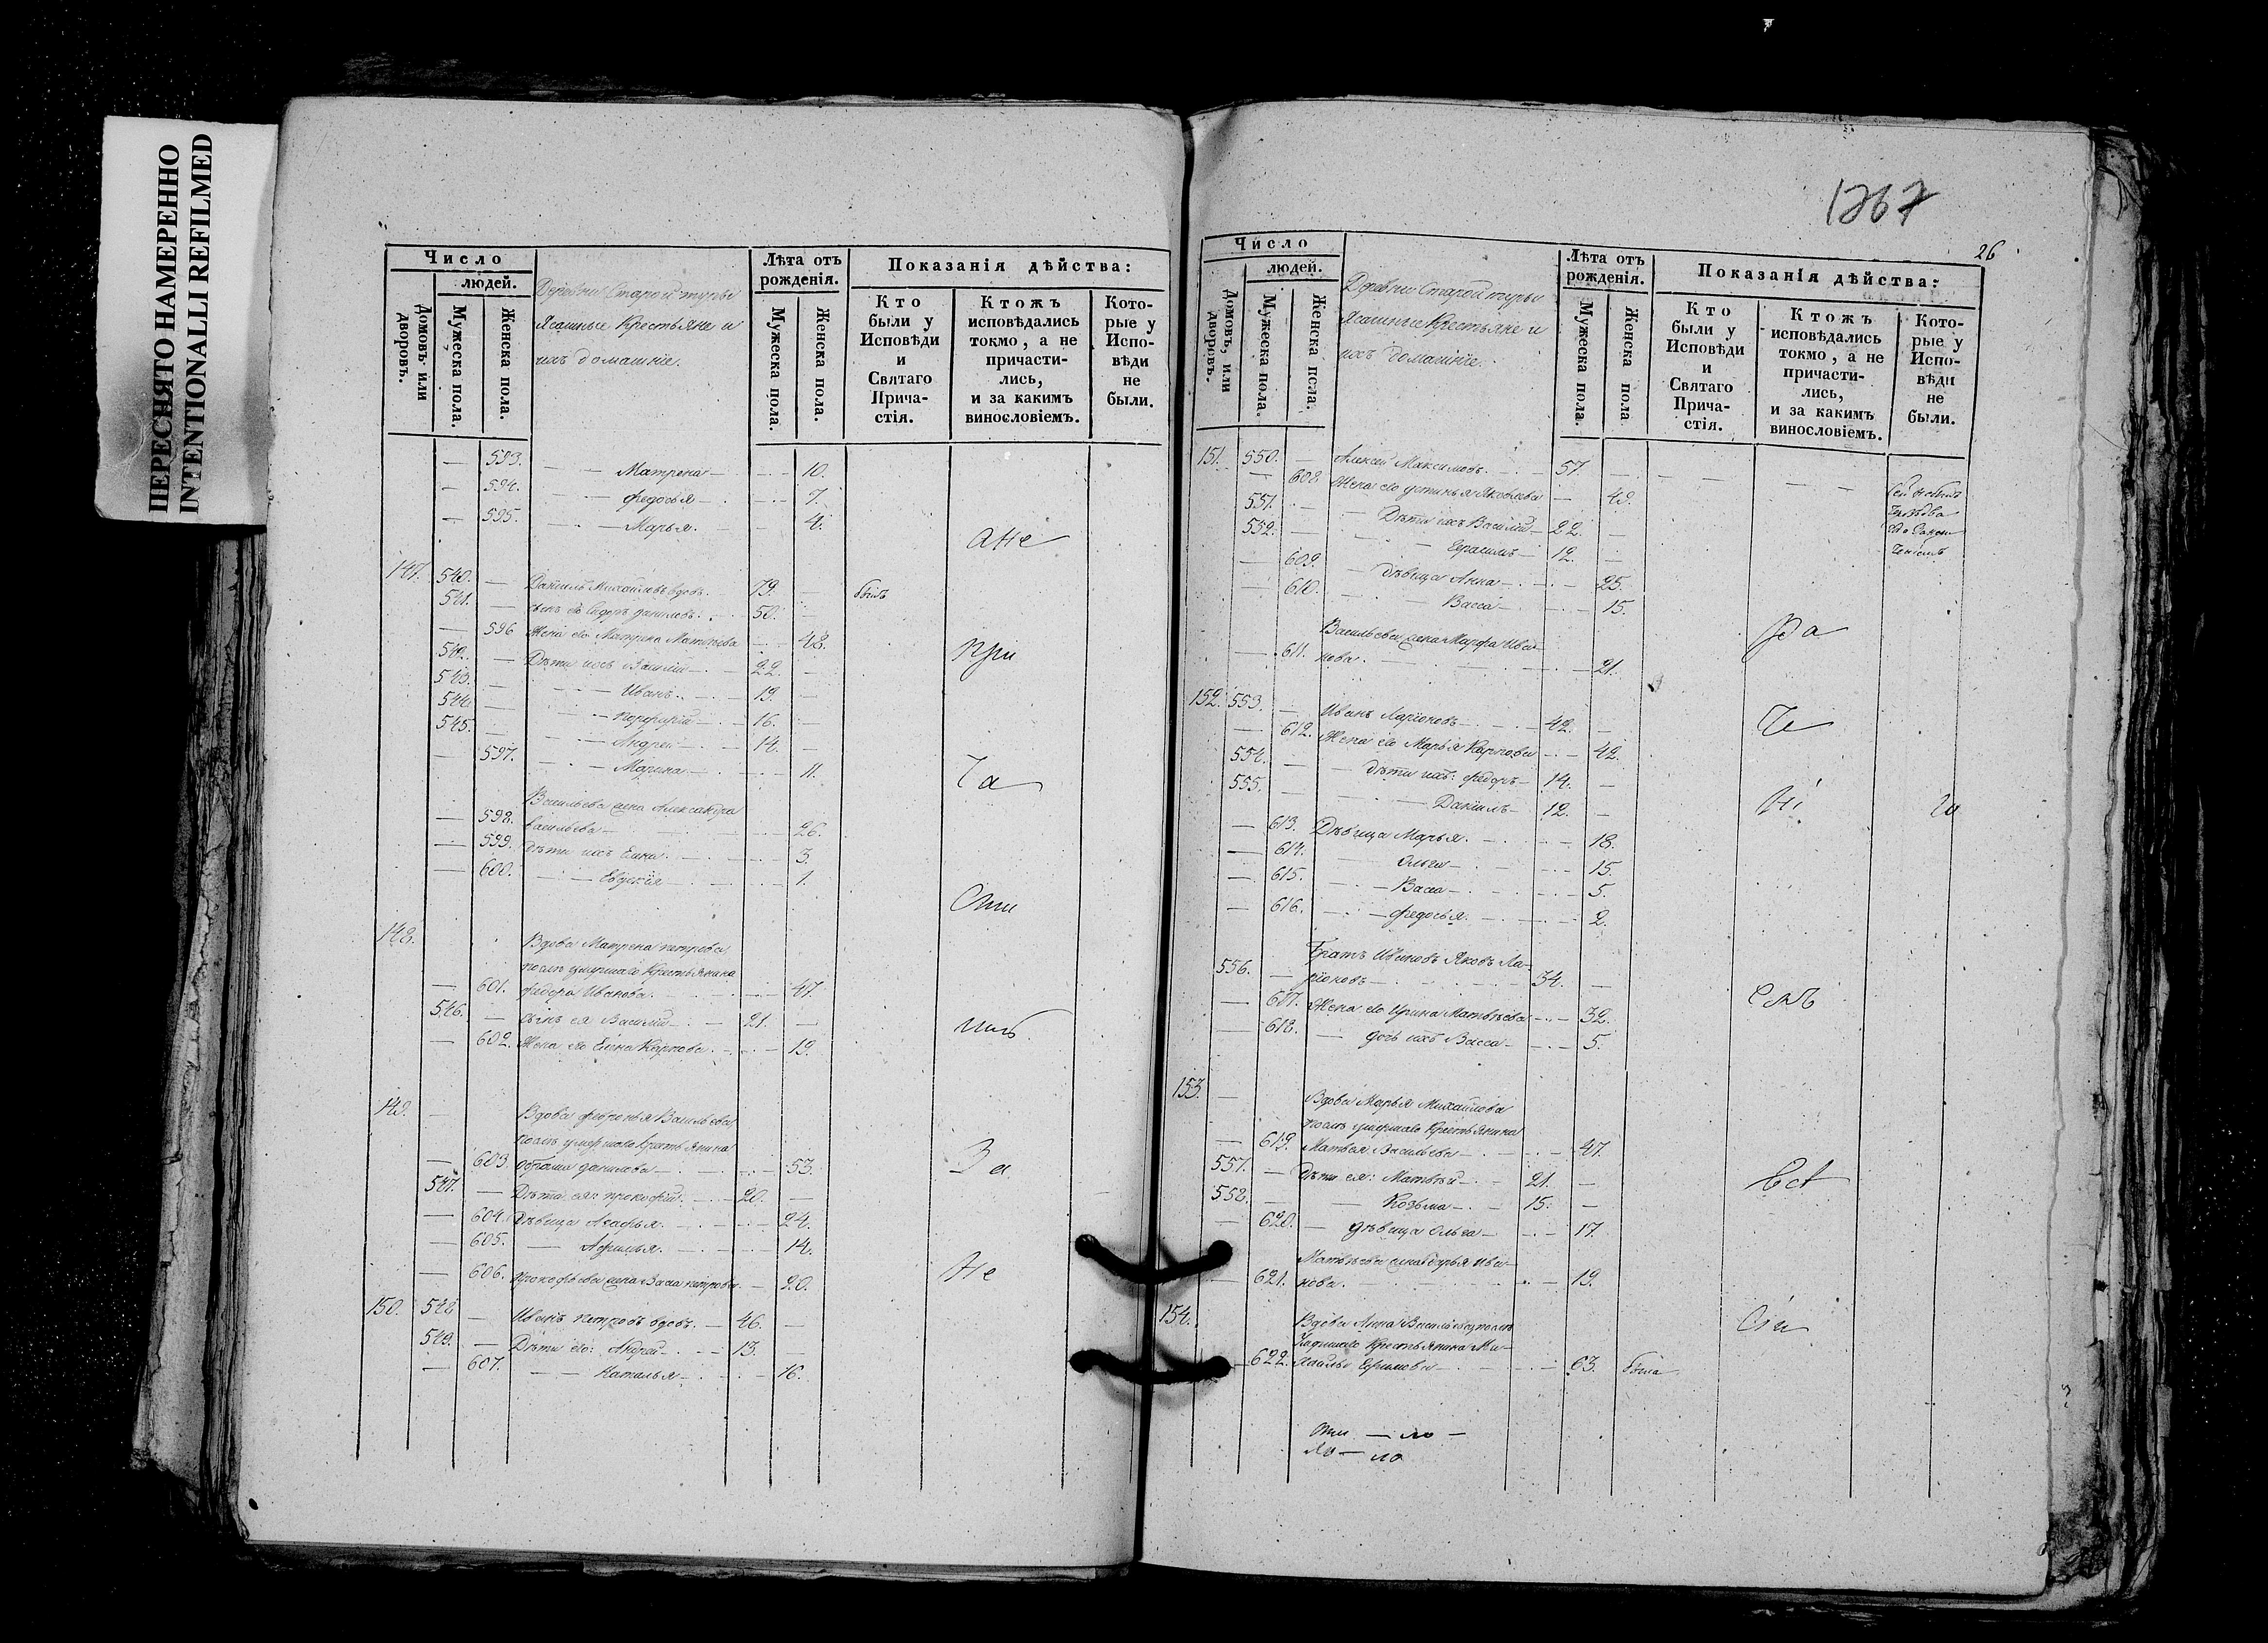 ПЕРЕСНЯТО НАМЕРЕННО
INTENTIONALLI REFILMED
Число
людей.
Домовъ или дворовъ.
Мужеска пола.
Женска пола.
Деревни Старой турьи
Ясашные Крестьяне и
ихъ домашніе.
Лѣта отъ рожденія.
Мужеска пола.
Женска пола.
Показанія дѣйства:
Кто были у Исповѣди и Святаго Причастія.
Ктожъ исповѣдались токмо, а не причастились, и за какимъ винословіемъ.
Которые у Исповѣди не были.
— 593. — — Матрена — — 10.
— 594. — — Федосья — — 7.
— 595. — — Марья. — — 4.
а не
147. 540. — Даніилъ Михайловъ вдовъ. 79. — былъ
541. — сынъ его Сидоръ даниловъ. 50. —
— 596 Жена его Матрена Матвѣева — 48.
при
542. — Дѣти ихъ Василій — 22. —
543. — — Иванъ. — 19. —
544. — — порфирій — 16. —
545. — — Андрей — 14. —
— 597. — — Марина — — 11.
ча
Васильева жена Александра
— 598. васильева — — 26.
— 599. дѣти ихъ Елена. — — 3.
— 600. — — Евдокія — — 1.
сти
148. Вдова Матрена петрова
послѣ умершаго Крестьянина
— 601. федора Иванова. — — 47.
546. — сынъ ея Василій — 21. —
— 602. Жена его Елена Карпова. — — 19.
149. — Вдова февронья Васильева
послѣ умершаго Крестьянина
— 603. данилова — — 53.
За
547. — Дѣти ея: прокофій. — 20. —
— 604. дѣвица Агафья. — — 24.
— 605. — Афимья. — — 14.
— 606. прокофьева жена Васса петрова. — 20.
не
150. 548 — Иванъ петровъ вдовъ. — 46. —
549. — Дѣти его: Андрей — 13. —
— 607. — — Наталья — — 16.
1267
26
Число
людей.
Домовъ, или дворовъ.
Мужеска пола.
Женска пола.
Деревни Старой турьи
Ясашные Крестьяне и
ихъ домашніе.
Лѣта отъ рожденія.
Мужеска пола.
Женска пола
Показанія дѣйства:
Кто были у Исповѣди и Святаго Причастія.
Ктожъ исповѣдались токмо, а не причастились, и за какимъ винословіемъ.
Которые у Исповѣди не были.
151. 550. — Алексей Максимовъ. — 57. —
— 608 Жена его устинья Яковлева — 49.
551. — — Дѣти ихъ Василій — 22. —
552. — — Герасимъ — 12. —
— 609. — дѣвица Анна — — 25.
— 610. — — Васса — — 15.
Васильева жена Марфа Ива-
— 611. нова. — — 21.
152. 553. — Иванъ Ларіоновъ — 42. —
— 612. Жена его Марья Карпова — — 42.
554. — — дѣти ихъ: федоръ — 14. —
555. — — Даніилъ — 12. —
ні
— 613. Дѣвица Марья. — — 18.
— 614. — Ольга — — 15.
— 615. — — Васса — — 5.
— 616. — — федосья. — — 2.
Братъ Ивановъ Яковъ Ла-
556. — ріоновъ — 34. —
— 617. Жена его Ирина Матвѣева — — 32.
— 618. — дочь ихъ Васса — — 5.
емъ
153. — Вдова Марья Михайлова
послѣ умершаго Крестьянина
— 619. Матвея Васильева — — 47.
557. — дѣти ея: Матвѣй — 21. —
558. — — Козьма — 15. —
— 620. — дѣвица Ольга — — 17.
Матвѣева жена Дарья Ива-
— 621. нова. — — 19.
154. Вдова Анна Васильева послѣ
Крестьянина Ми-
— 622. хаила Ефимова — — 63. была